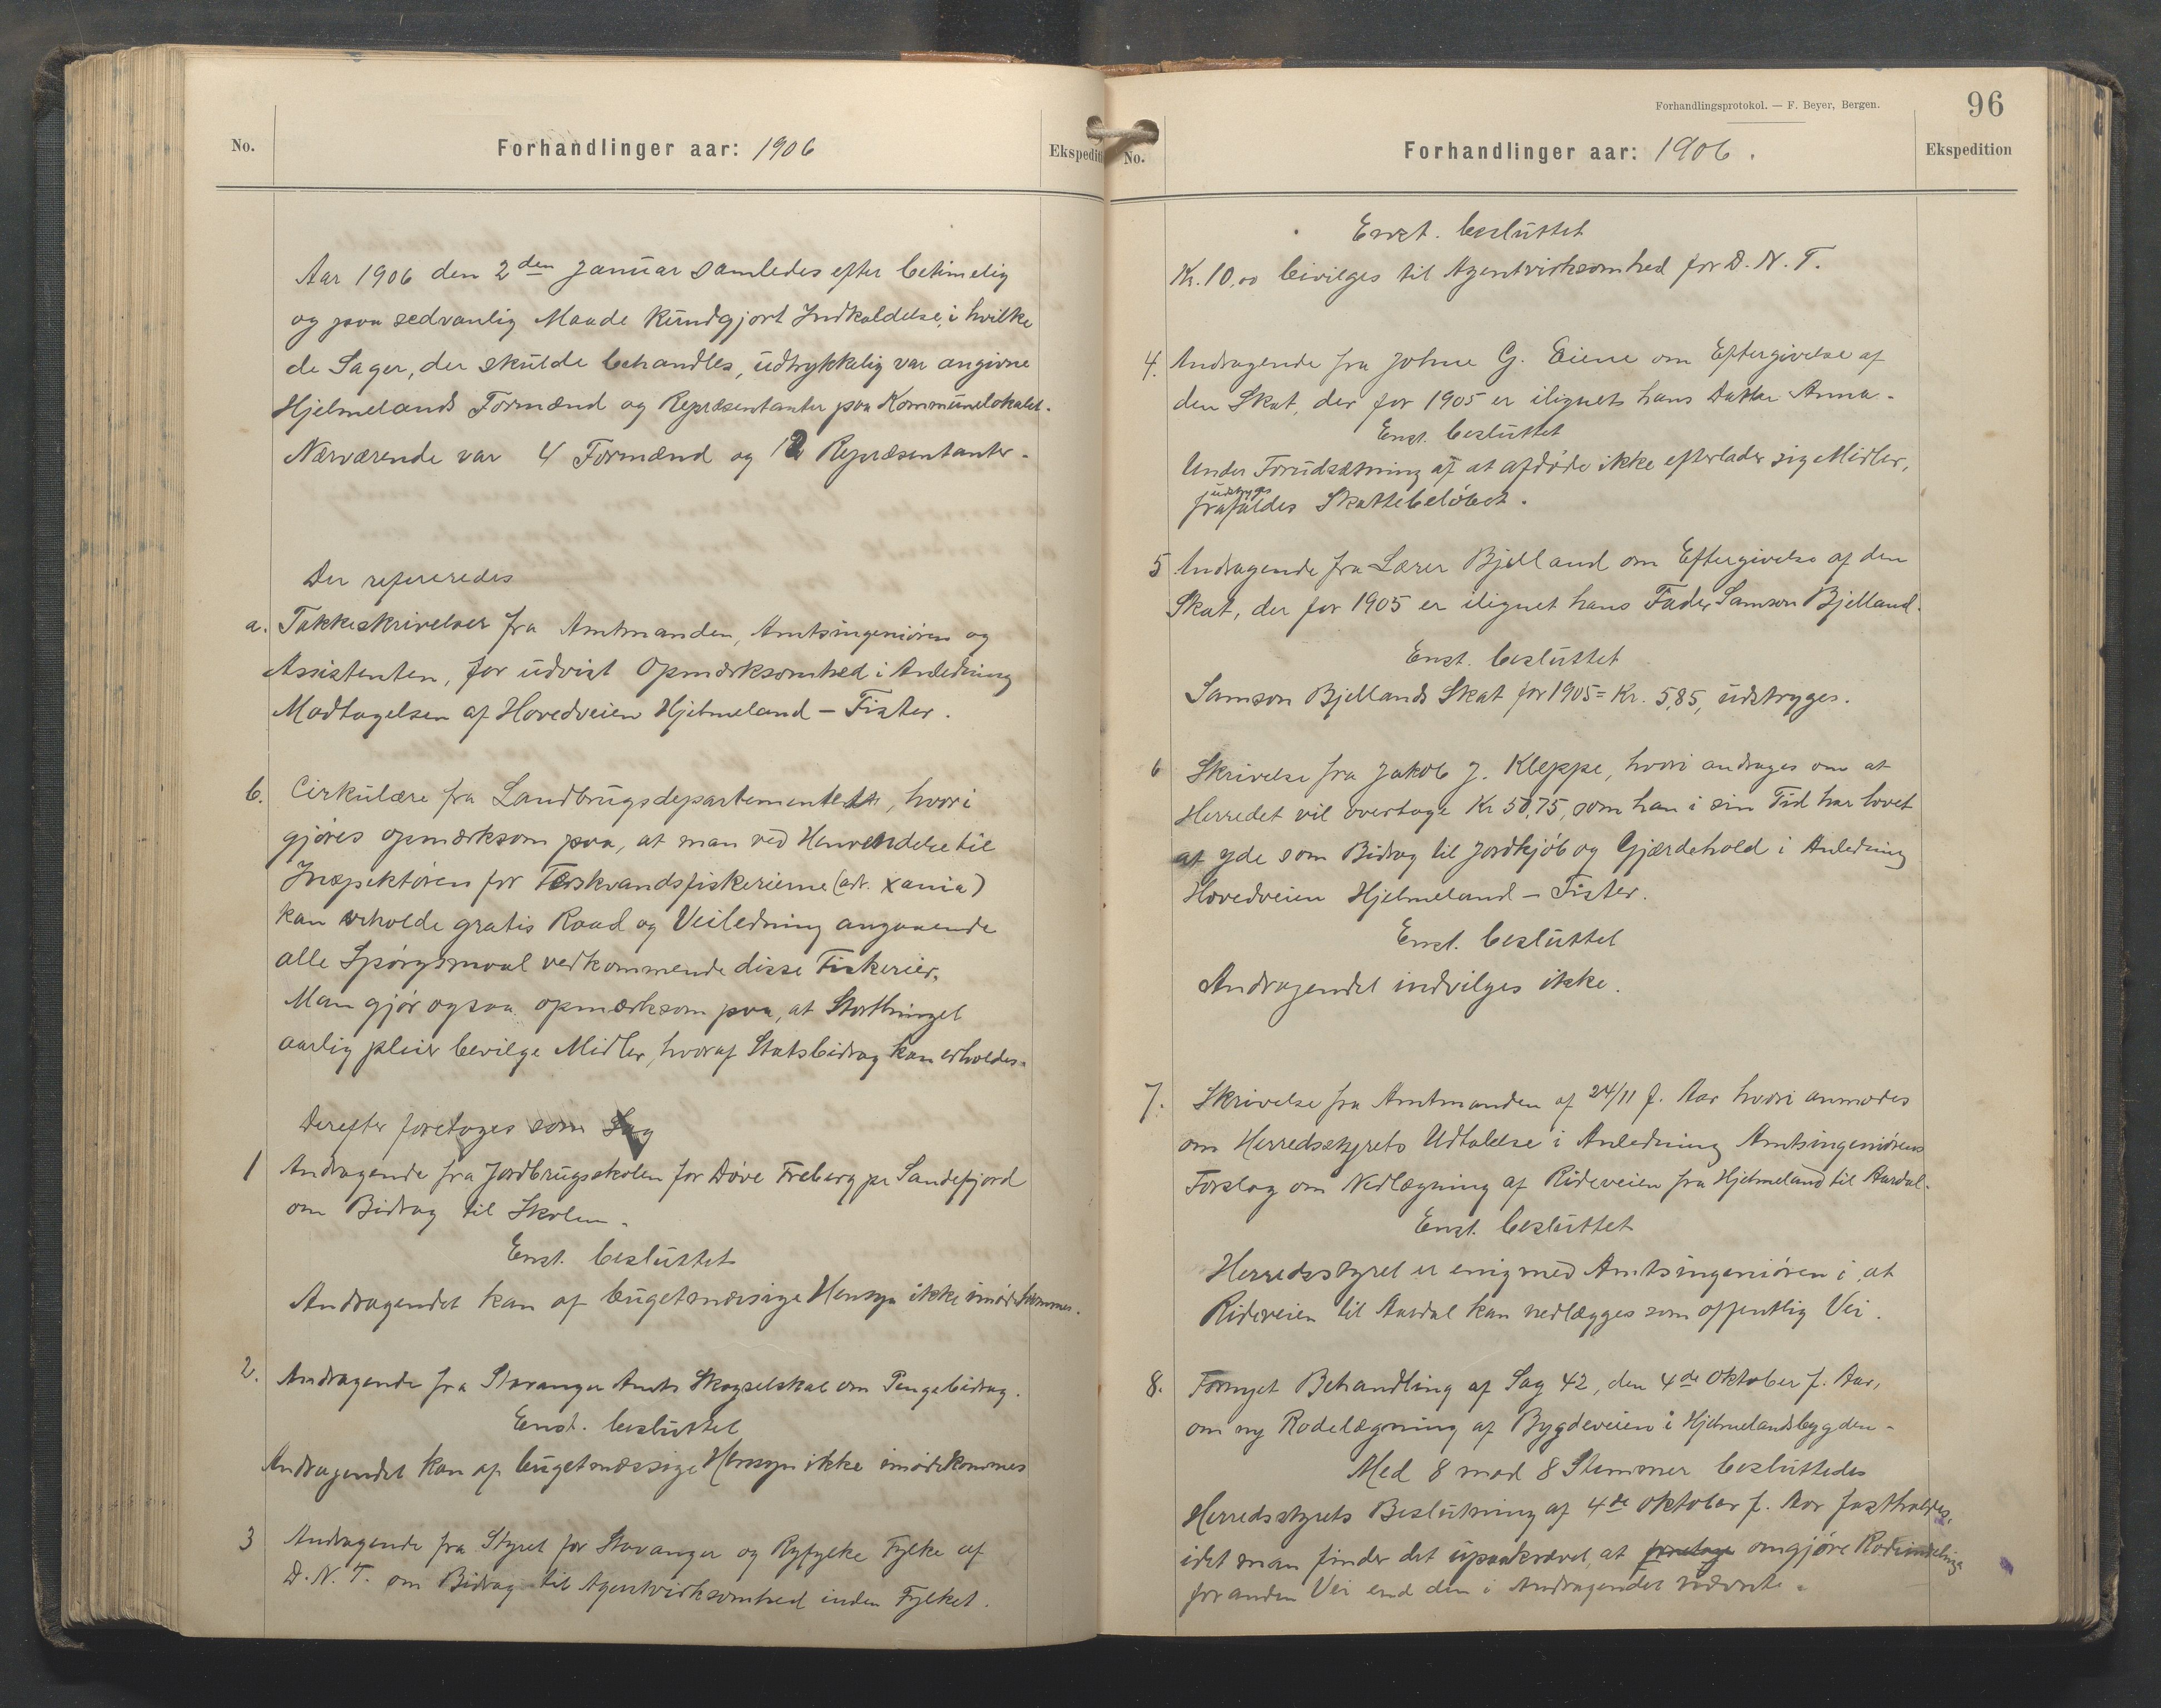 No.
Forhandlinger aar: 1906
Ekspediti
Aar 1906 den 2den Januar samledes efter betimelig
og paa sedvanlig Maade kundgjort Indkaldelse, i hvilke
de Sager, der skulde behandles, udtrykkelig var angivne
Hjelmelands Formænd og Repræsentanter paa Kommunelokalet.
Nærværende var 4 Formænd og 12 Repræsentanter.
Der refereredes
a. Takkeskrivelser fra Amtmanden, Amtsingeniøren og
Assistenten, for udvist Opmærksomhed i Anledning
Modtagelsen af Hovedveien Hjelmeland – Fister.
b. Cirkulære fra Landbrugsdepartementet, hvori
gjøres opmærksom paa, at man ved Henvendelse til
Inspektøren for Ferskvandsfiskerierne (adr. Xania)
kan erholde gratis Raad og Veiledning angaaende
alle Spørgsmaal vedkommende disse Fiskerier.
Man gjør ogsaa opmærksom paa, at Storthinget
aarlig pleier bevilge Midler, hvoraf Statsbidrag kan erholdes.
Derefter foretoges som Sag
1 Andragende fra Jordbrugsskolen for Døve Freberg pr Sandefjord
om Bidrag til Skolen.
Enst. besluttet
Andragendet kan af bugetmæssige Hensyn ikke imødekommes.
2. Andragende fra Stavanger Amts Skogselskab om Pengebidrag.
Enst. besluttet
Andragendet kan af bugetmæssige Hensyn ikke imødekommes
3 Andragende fra Styret for Stavanger og Ryfylke Fylke af
D. N. T. om Bidrag til Agentvirksomhed inden Fylket.
Forhandlingsprotokol. — F. Beyer, Bergen.
96
No.
Forhandlinger aar: 1906.
Ekspedition
Enst. besluttet
Kr. 10,00 bevilges til Agentvirksomhed for D. N. T.
4. Andragende fra Johne G. Eiene om Eftergivelse af
den Skat, der for 1905 er ilignets hans Datter Anna.
Enst. besluttet
Under Forudsætning af at afdøde ikke efterlader sig Midler,
udstryges
frafaldes Skattebeløbet.
5 Andragende fra Lærer Bjelland om Eftergivelse af den
Skat, der for 1905 er ilignet hans Fader Samson Bjelland.
Enst. besluttet
Samson Bjellands Skat for 1905 = Kr. 5,85, udstryges.
6 Skrivelse fra Jakob J. Kleppe, hvori andrages om at
Herredet vil overtage Kr 50,75, som han i sin Tid har lovet
at yde som Bidrag til Jordkjøb og Gjærdehold i Anledning
Hovedveien Hjelmeland – Fister.
Enst. besluttet
Andragendet indvilges ikke.
7. Skrivelse fra Amtmanden af 24/11 f. Aar hvori anmodes
om Herredsstyrets Udtalelse i Anledning Amtsingeniørens
Forslag om Nedlægning af Rideveien fra Hjelmeland til Aardal.
Enst. besluttet
Herredsstyret er enig med Amtsingeniøren i, at
Rideveien til Aardal kan nedlægges som offentlig Vei.
8. Fornyet Behandling af Sag 42, den 4de Oktober f. Aar,
om ny Rodelægning af Bygdeveien i Hjelmelandsbygden.
Med 8 mod 8 Stemmer besluttedes
Herredsstyrets Beslutning af 4de Oktober f. Aar fastholdes,
idet man finder det upaakrævet, at foretage omgjøre Rodeinddeling
for anden Vei end den i Andragendet nævnte.